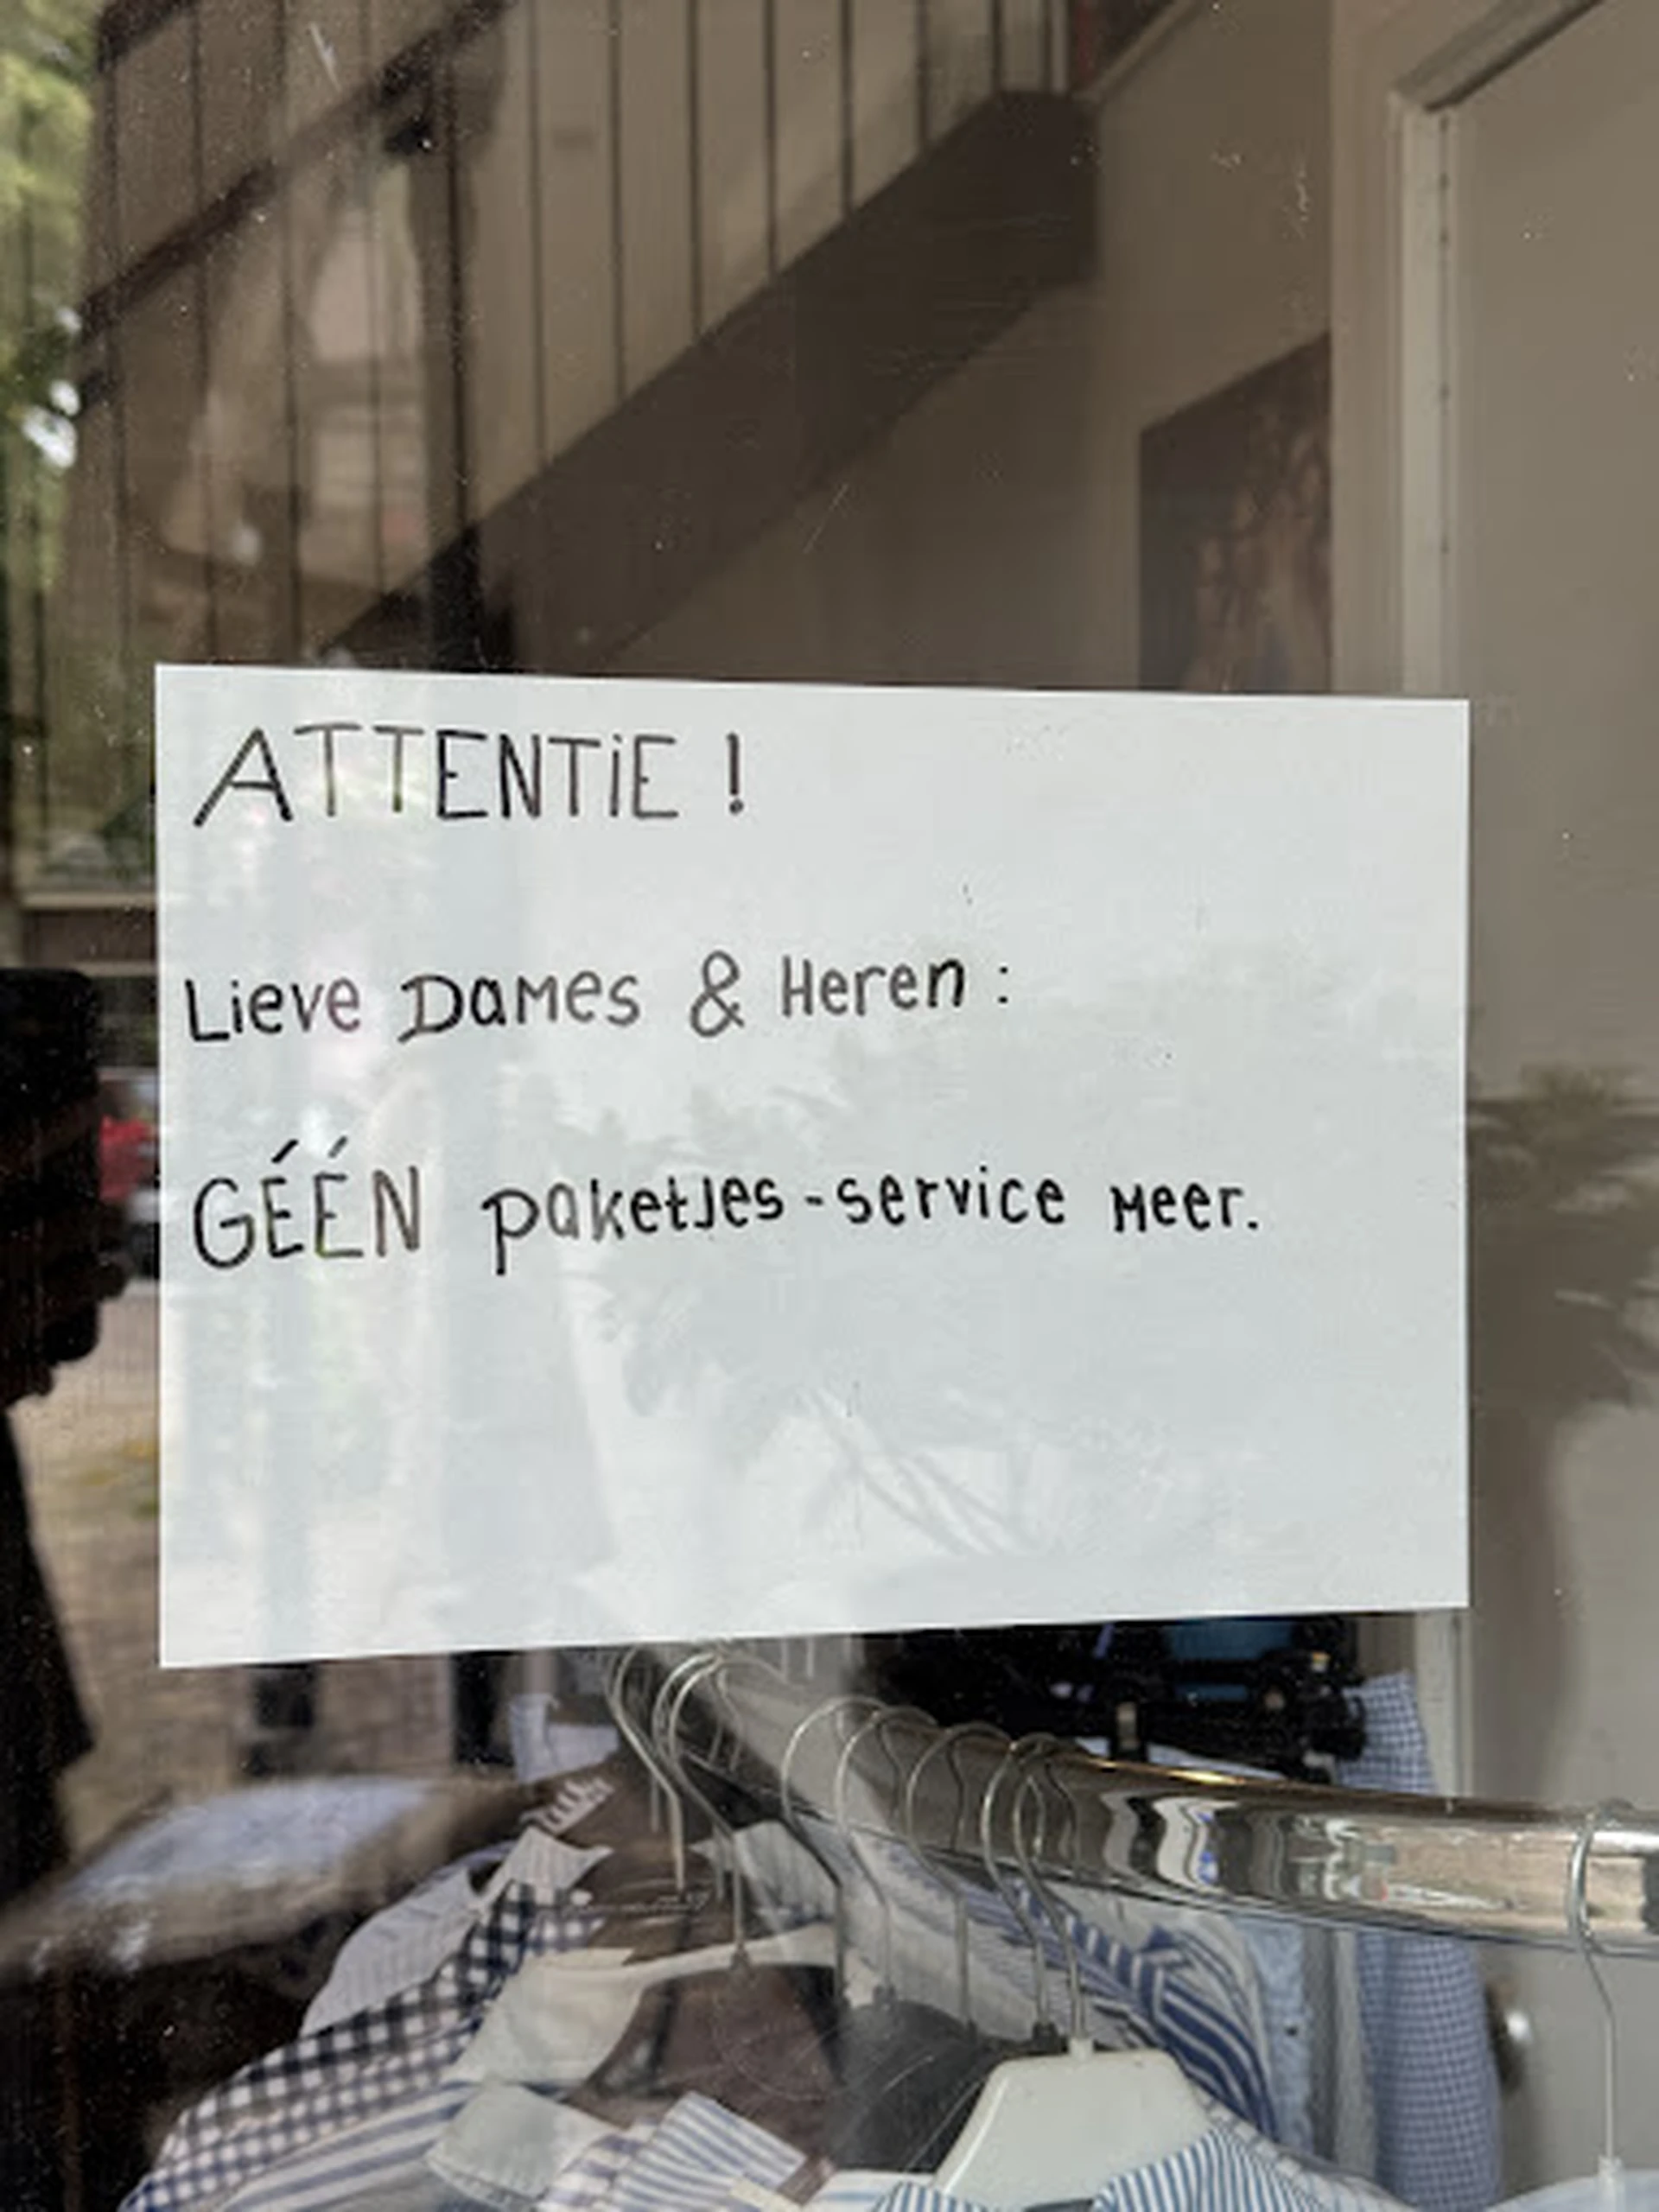 ATTENTiE !
Lieve Dames & Heren :
GÉÉN paketjes-service meer.